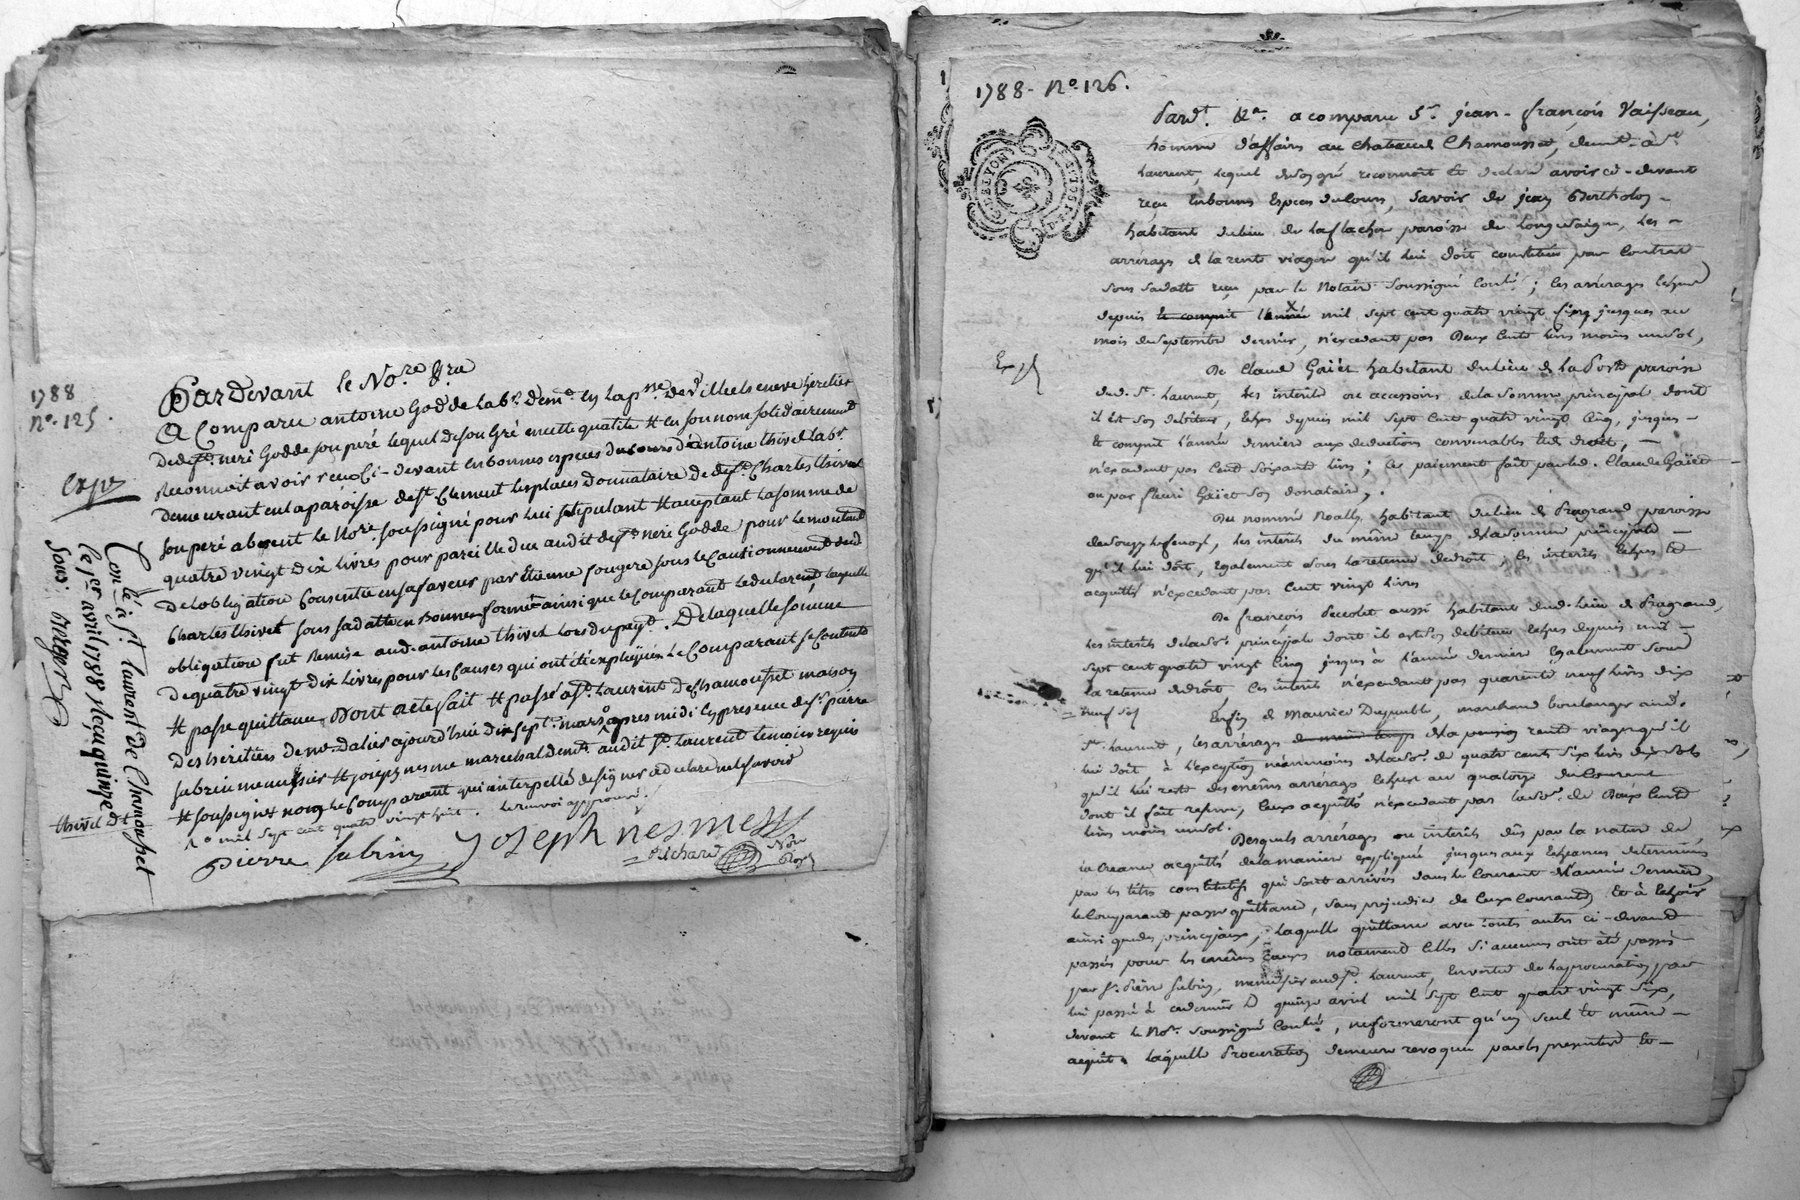 1788
Nº. 125.
Pardevant le No.re &ra
A Comparu antoine Godde lab.r dem.t en la p.sse de Villecheneve heretier
De deft. neri Godde son peré lequel de son Gré en cette qualité & en son nom solidairement
Reconnoit avoir reçu Ci-devant en bonnes especes du cours d'antoine thivel lab.r
demeurant en la paroisse de st. Clement les places Donnataire de deft. Charles thivel
son peré absent le No.re soussigné pour lui stipulant & acceptant la somme de
quatre vingt dix livres pour pareille due audit deft. neri Godde pour le montant
De l'obligation Consentie en sa faveur par Etienne fougere sous le Cautionnement dud.
Charles thivel sous sa datte en Bonne forme ainsi que le Comparant le declare, laquelle
obligation fut Remise aud. antoine thivel lors du payt. De laquelle somme
De quatre vingt dix livres pour les Causes qui ont été expliquées le Comparant se Contente
& passe quittance Dont acte fait & passé a st. Laurent de Chamousset maison
Des héritiers de mr. Dalier ajourd'hui dix sept mars après midi en presence de sr. pierre
subrin menuisier & joseph nesme marechal demt. audit st. Laurent temoins requis
& soussignés non le Comparant qui interpellé de signer a declaré ne le savoir
mil sept cent quatre vingt huit. le renvoi approuvé.
pierre subrin joseph nesme
Richard
Nore
Royal
exp.
Conlé à St. laurent de Chamousset
le 1er avril 1788 Reçu quinze
sous
thivel
1788 - Nº. 126.
Pardt. &a. a comparu Sr. jean-françois Vaisseau,
homme d'affaires au chateau de Chamousset, demt. à St
laurent, lequel de son gré reconnoit et declare avoir ci-devant
reçu en bonnes Especes du cours, savoir de jean Bertholon
habitant du lieu de la flachere paroisse de Longesaigne, les
arrérages de la rente viagere qu'il lui doit constituée par Contrat
sous sa datte reçu par le Notaire soussigné Conlé; les arrérages echus
depuis le compris l'année mil sept cent quatre vingt cinq jusques au
mois de septembre dernier, n'excedant pas Deux Cents livres moins un sol,
Exp.
De Claude Goiet habitant du lieu de la Porte paroisse
dud. St. laurent, les interets ou accessoirs de la somme principal dont
il est son debiteur, echus depuis mil sept cent quatre vingt cinq, jusques
& compris l'année derniere aux deductions convenables de droit,
n'excedent pas Cent soixante livres; ce paiement fait par led. Claude Goiet
ou par fleuri Goiet son donataire.
Du nommé Noally habitant du lieu de Fragrand paroisse
de Souzy, les interets du même temps de la somme principale
qu'il lui doit, Egalement sous la retenue de droit; ces interets echus et
acquittés n'excedant pas Cent vingt livres
De françois Peccolet aussi habitant dud. lieu de Fragrand,
les interets de la so. principale dont il est son debiteur echus depuis mil
sept cent quatre vingt cinq jusques à l'année derniere Egalement sous
la retenue de droit Ces interets n'excedant pas quarante neuf livres dix
neuf sol
Enfin de Maurice Dupuble, marchand boulanger aud.
St. laurent, les arrérages du même temps de la pension rente viagere qu'il
lui doit à l'exception néanmoins de la so. de quatre cents six livres dix sols
qu'il lui reste des mêmes arrérages echus au quatorze du Courant
dont il fait reserve, ceux acquittés n'excedant pas la so. de Deux Cents
livres moins un sol.
Desquels arrérages ou interets dûs par la nature de
la Creance acquittés de la maniere expliquée jusques aux Echeances determinées
par les titres constitutifs qui sont arrivées dans le Courant de l'année derniere
le Comparant passe quittance, sans prejudice de Ceux Courants Et à Echoir
ainsi que des principaux, laquelle quittance avec toutes autres ci-devant
passées pour les mêmes causes notament Celles si aucunes ont été passées
par sr. Pierre subrin, menuisier aud. St. laurent, En vertu de la procuration par
lui passée à ce dernier le quinze avril mil sept cent quatre vingt six,
devant le Nore. soussigné Conlée, ne formeront qu'un seul & même
acquit, laquelle Procuration demeure revoquée par les presentes Et